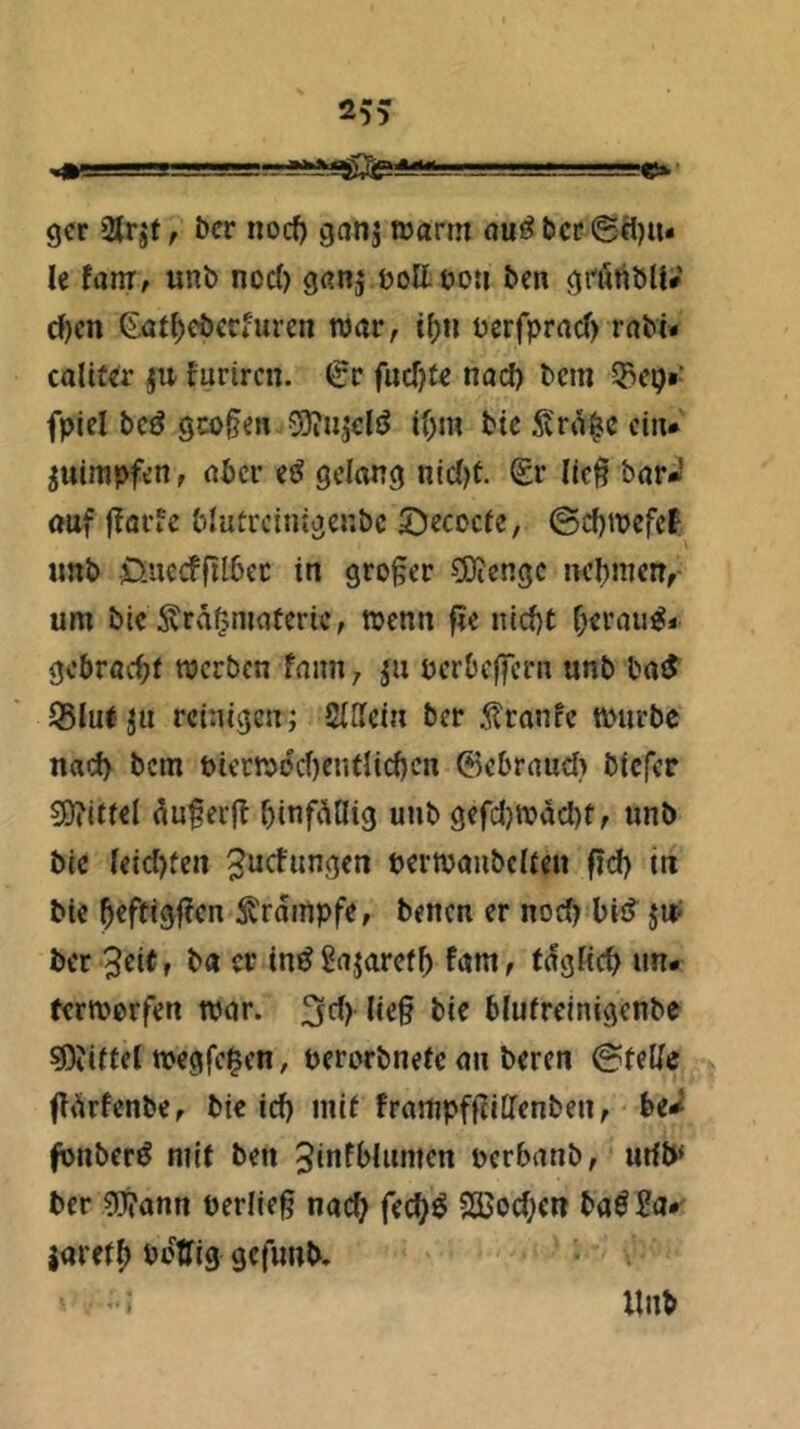 255
ger Arzt, der noch ganz warm aus der Schu-
le kam, und noch ganz voll von den gründli-
chen Cathederkuren war, ihn versprach radi-
caliter zu kuriren. Er suchte nach dem Bey-
spiel des großen Muzels ihm die Krätze ein-
zuimpfen, aber es gelang nicht. Er ließ dar-
auf starke blutreinigende Decocte, Schwefel
und Quecksilber in großer Menge nehmen,
um die Krätzmaterie, wenn sie nicht heraus-
gebracht werden kann, zu verbessern und das
Blut zu reinigen; Allein der Kranke wurde
nach dem vierwöchentlichen Gebrauch dieser
Mittel äußerst hinfällig und geschwächt, und
die leichten Zuckungen verwandelten sich in
die heftigsten Krämpfe, denen er noch bis zu
der Zeit, da er ins Lazareth kam, täglich un-
terworfen war. Ich ließ die blutreinigende
Mittel wegsetzen, verordnete an deren Stelle
stärkende, die ich mit krampfstillenden, be-
sonders mit den Zinkblumen verband, und
der Mann verließ nach sechs Wochen das La-
zareth völlig gesund.
Und